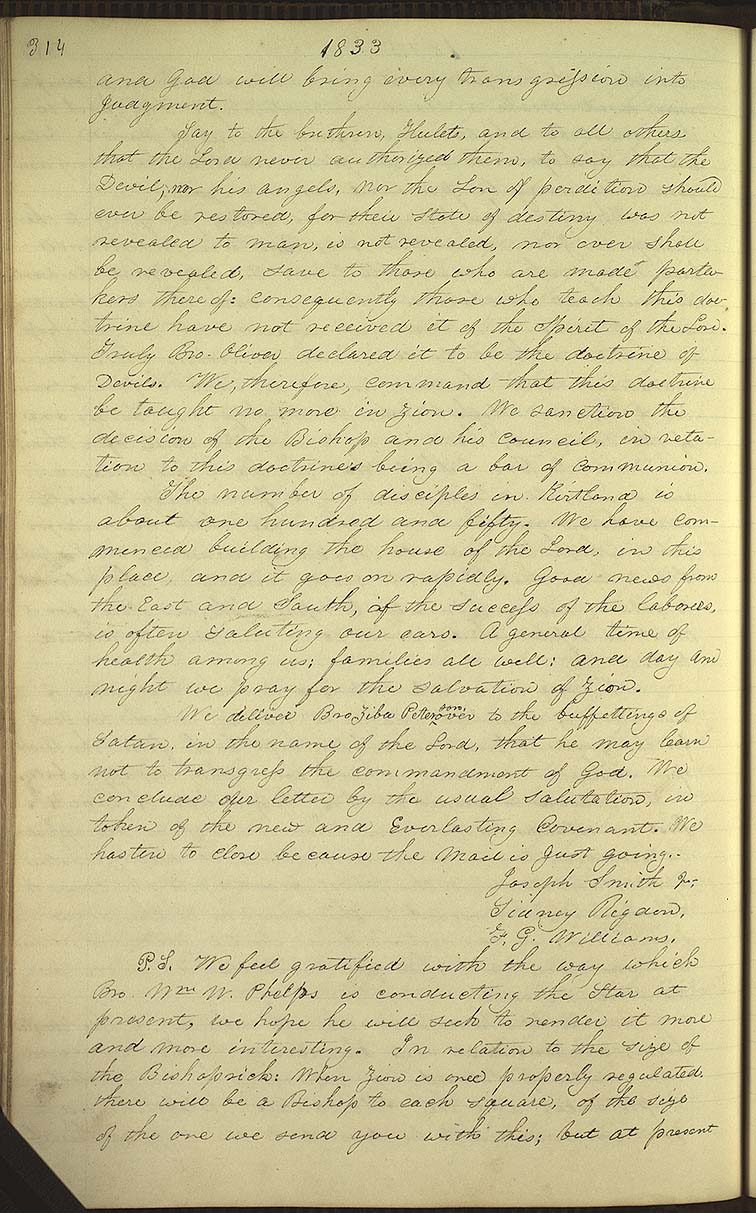 314 1833
and God will bring every transgression into
Judgment.
Say to the brethren, Hulets, and to all others
that the Lord never authorized them, to say that the
Devil, nor his angels, nor the Son of perdition should
ever be restored, for their state of destiny was not
revealed to man, is not revealed, nor ever shall
be revealed, save to those who are made parta-
kers there of: consequently those who teach this doc-
trine have not received it of the Spirit of the Lord.
Truly Bro. Oliver declared it to be the doctrine of
Devils. We, therefore, command that this doctrine
be taught no more in Zion. We sanction the
decision of the Bishop and his council, in rela-
tion to this doctrine's being a bar of communion.
The number of disciples in Kirtland is
about one hundred and fifty. We have com-
menced building the house of the Lord, in this
place, and it goes on rapidly. Good news from
the East and South, of the success of the laborers,
is often saluting our ears. A general time of
health among us; families all well; and day and
night we pray for the salvation of Zion.
We deliver Bro Ziba Peterson over to the buffettings of
Satan, in the name of the Lord, that he may learn
not to transgress the commandment of God. We
conclude our letter by the usual salutation, in
token of the new and Everlasting Covenant. We
hasten to close because the Mail is Just going.
Joseph Smith Jr;
Sidney Rigdon,
F. G. Williams.
P.S. We feel gratified with the way which
Bro. Wm W. Phelps is conducting the Star at
present, we hope he will seek to render it more
and more interesting. In relation to the size of
the Bishoprick: When Zion is once properly regulated
there will be a Bishop to each square, of the size
of the one we send you with this; but at present